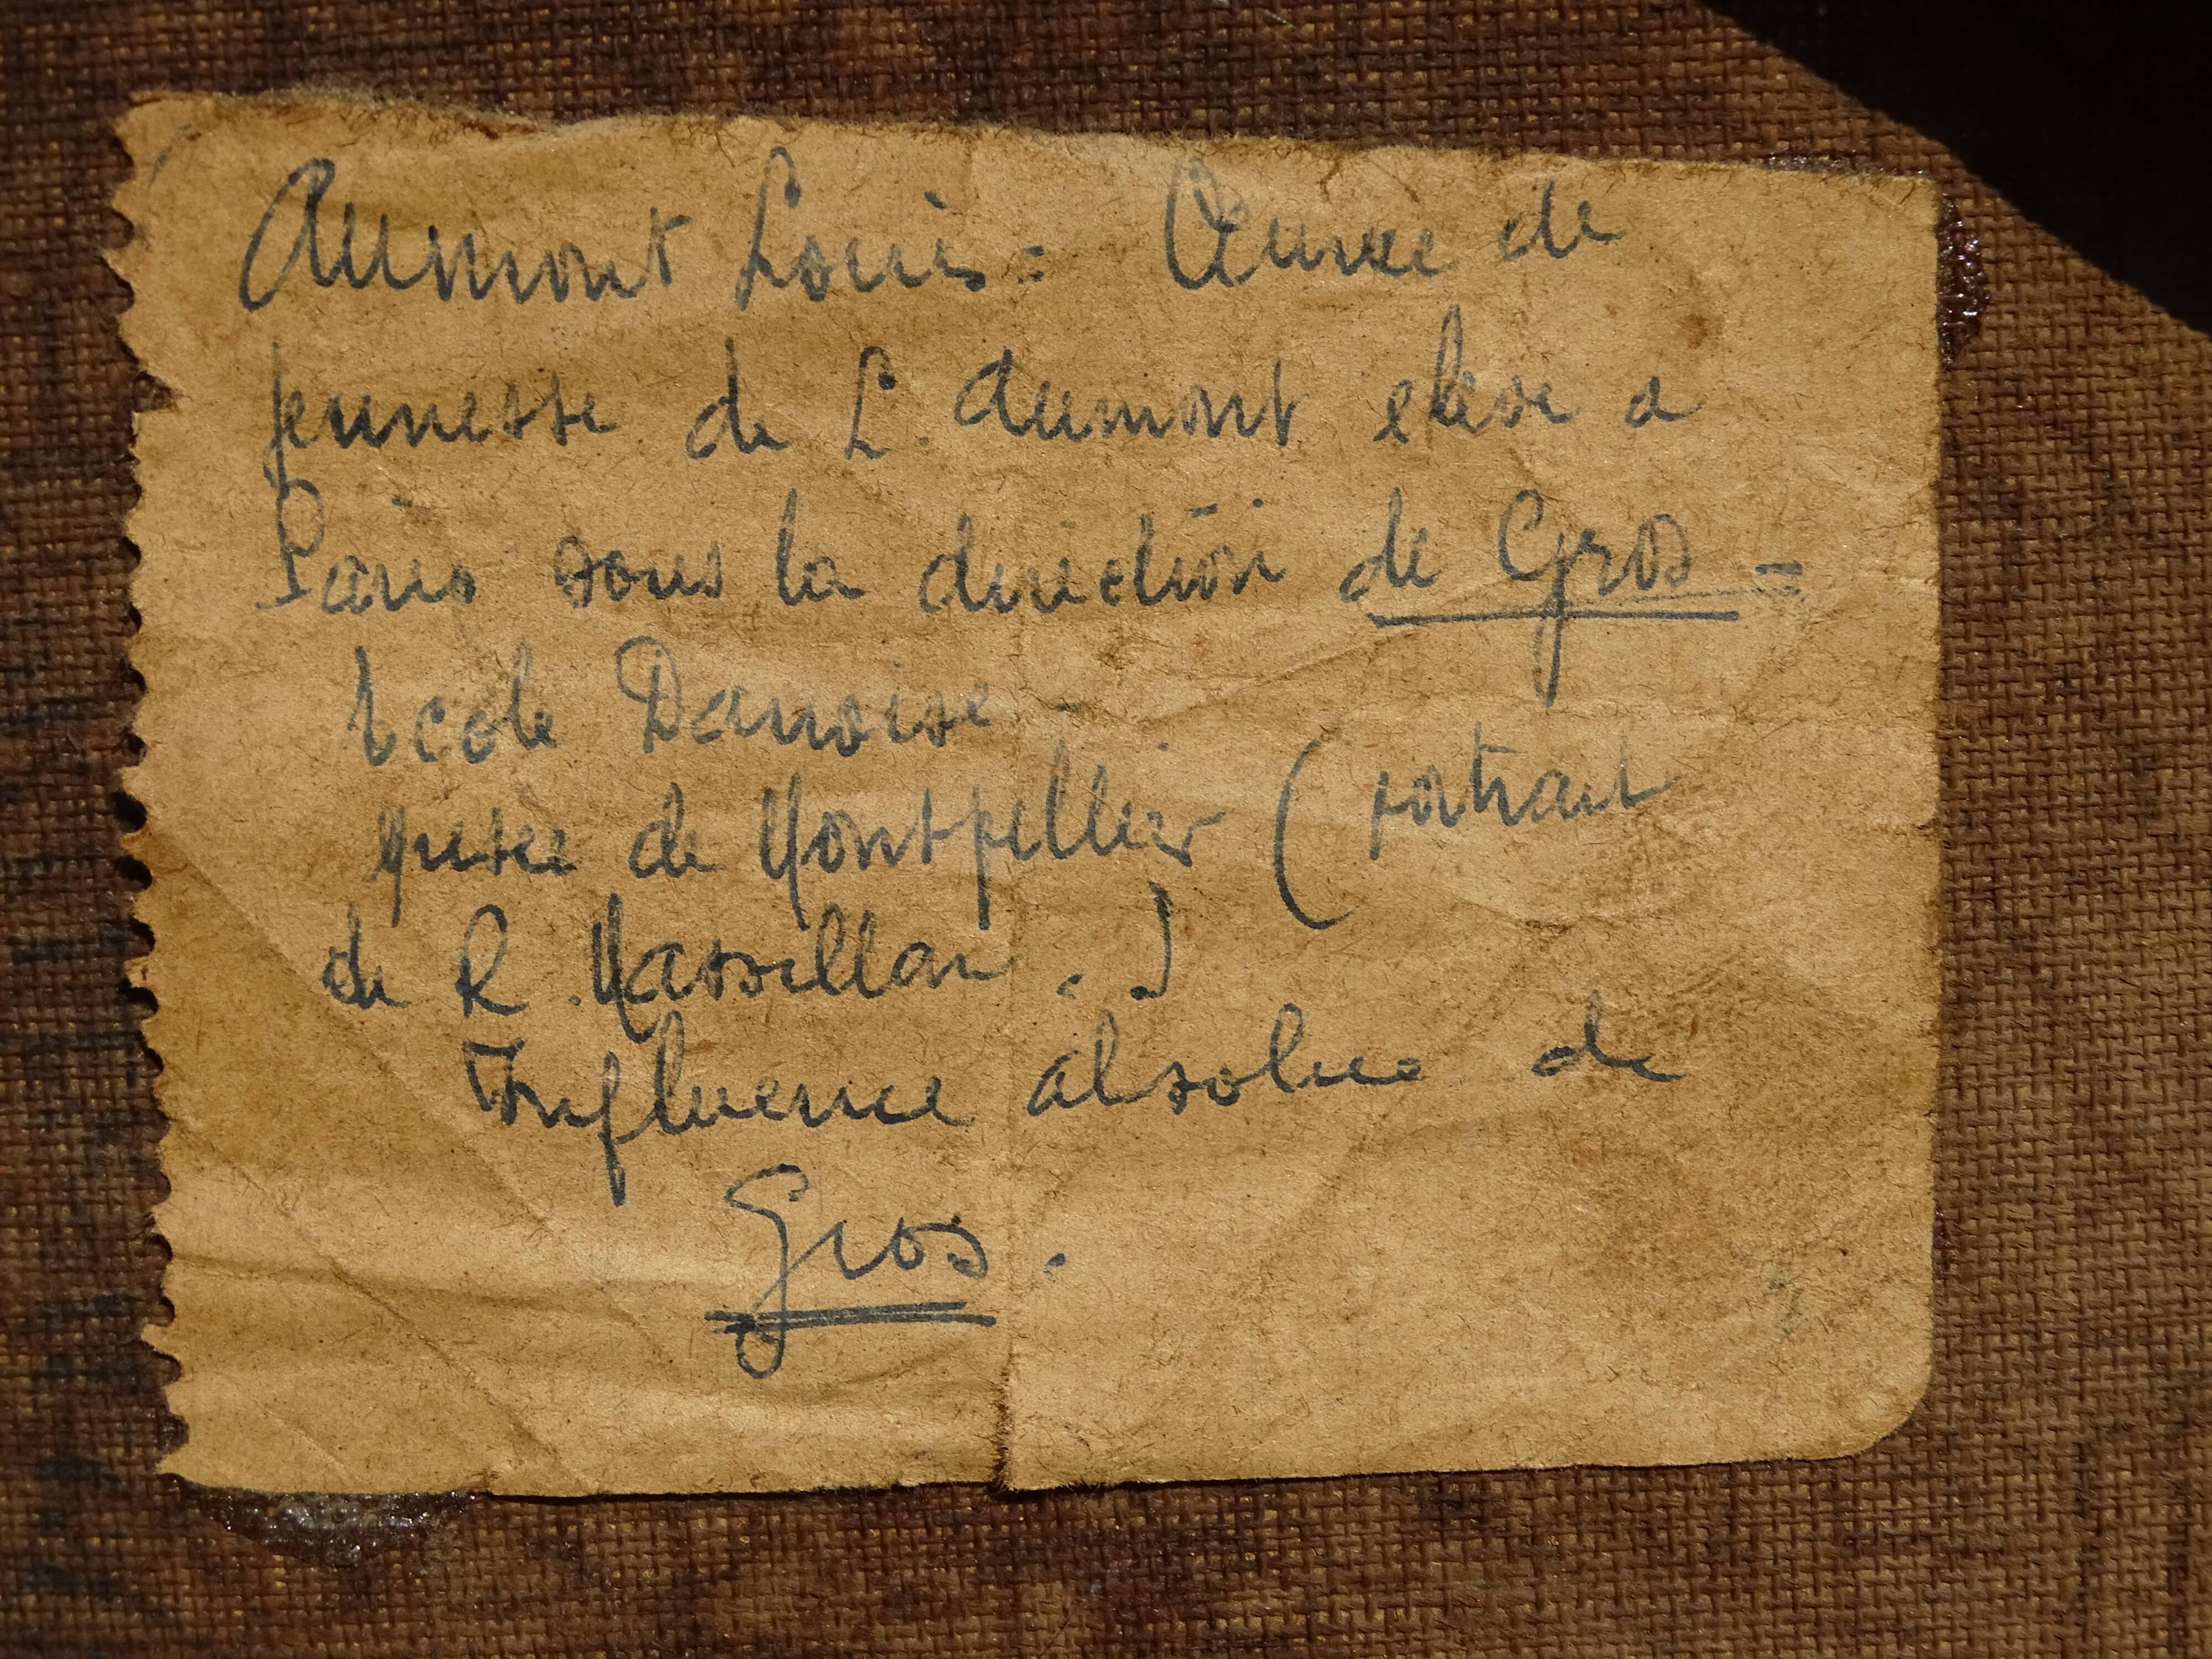 Aumont Louis = Œuvre de
jeunesse de L. Aumont eleve a
Paris sous la direction de Gros =
Ecole Danoise -
Musee de Montpellier (portrait
de R. Massillan.)
Influence absolue de
Gros.